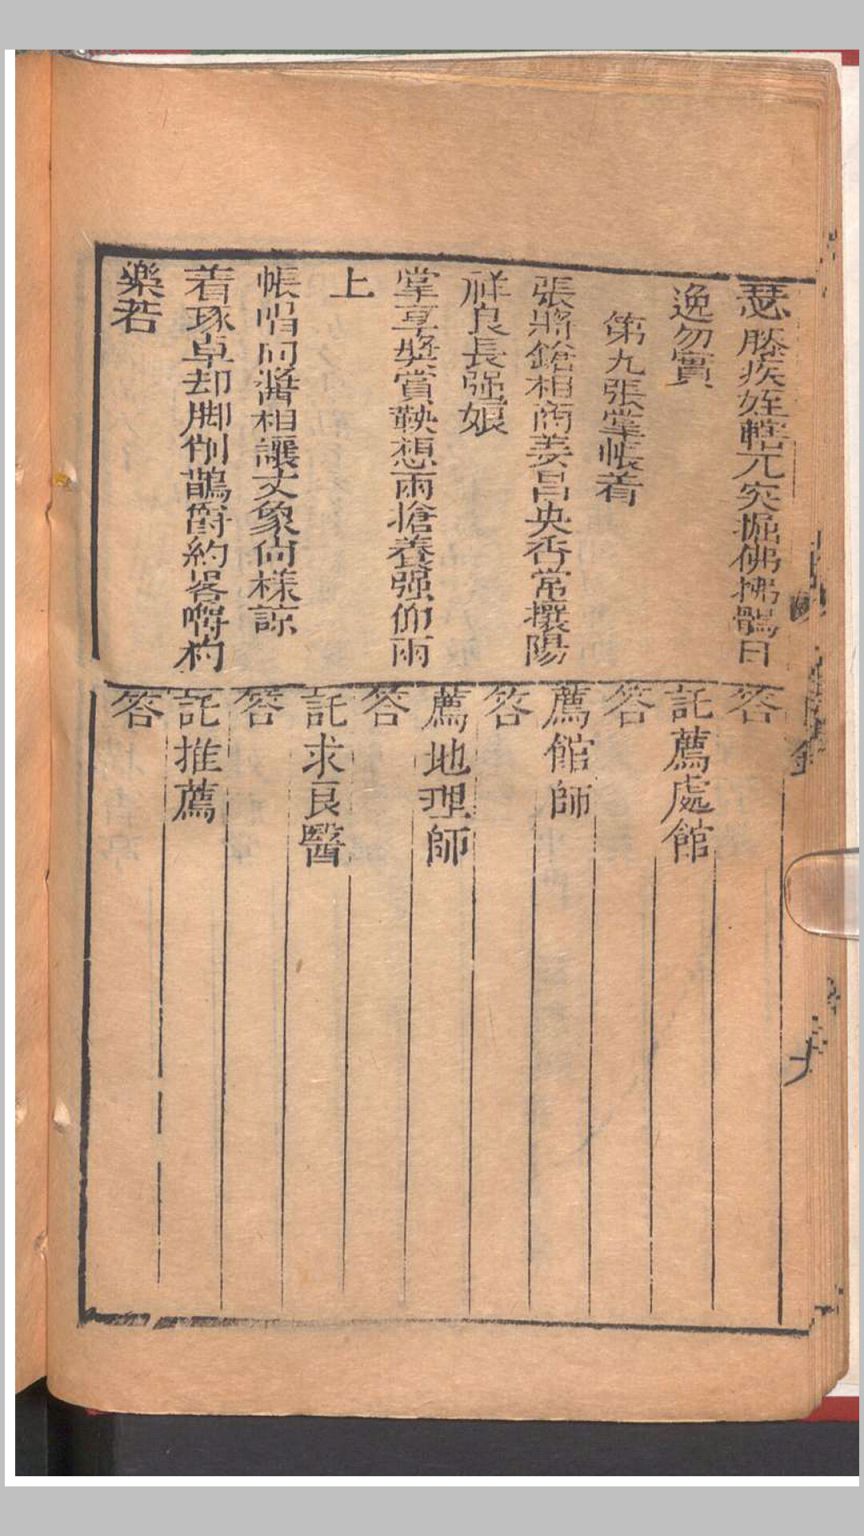 瑟膝疾姪轄兀突掘佛拂鶻日
逸勿實
第九張掌帳着
張將鎗相商姜昌央香常攘陽
祥良長强娘
掌享奬賞鞅想兩搶養强仰兩
上
帳唱向醬相讓丈象尙樣諒
着琢卓却脚削鵲爵約畧嚼杓
藥若
答
託薦處館
答
薦館師
答
薦地理師
答
託求良醫
答
託推薦
答